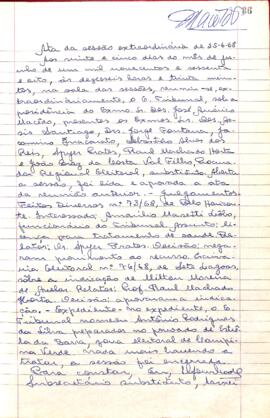 86
Ata da sessão extraordinária de 25-6-68
Aos vinte e cinco dias do mês de ju-
nho de um mil novecentos e sessenta
e oito, às dezesseis horas e trinta minu-
tos, na sala das sessões, reuniu-se, ex-
traordinariamente, o E. Tribunal, sob a
presidência do Exmo. Sr. Des. José Américo
Macêdo, presentes os Exmos. Srs. Des.
Assis Santiago, Drs. Jorge Fontana, Ja-
comino Inacarato, Sebastião
Reis, Spyer Prates, Raul Machado Horta
e João Braz da Costa Val Filho, Procura-
dor Regional Eleitoral, substituto. Aberta
a sessão, foi lida e aprovada a ata
da reunião anterior. - Julgamentos.
Feitos Diversos nº 73/68, de Belo Horizon-
te. Interessado:
funcionário do Tribunal. Assunto: li-
cença para tratamento de saúde. Re-
lator: Dr. Spyer Prates. Decisão: nega-
ram provimento ao recurso.
eleitoral nº 76/68, de Sete Lagoas,
sobre a indicação de Milton Moreira
de Relator: Prof. Raul Machado
Horta. Decisão: aprovaram a indica-
ção. - Expediente - No expediente, o E.
Tribunal nomeou Antônio Rodrigues
da Silva preparador no povoado de
da Barra, zona eleitoral de Campi-
na Verde. Nada mais havendo a
tratar, a sessão foi encerrada.
Para constar, Eu,
Subsecretário substituto, lavrei